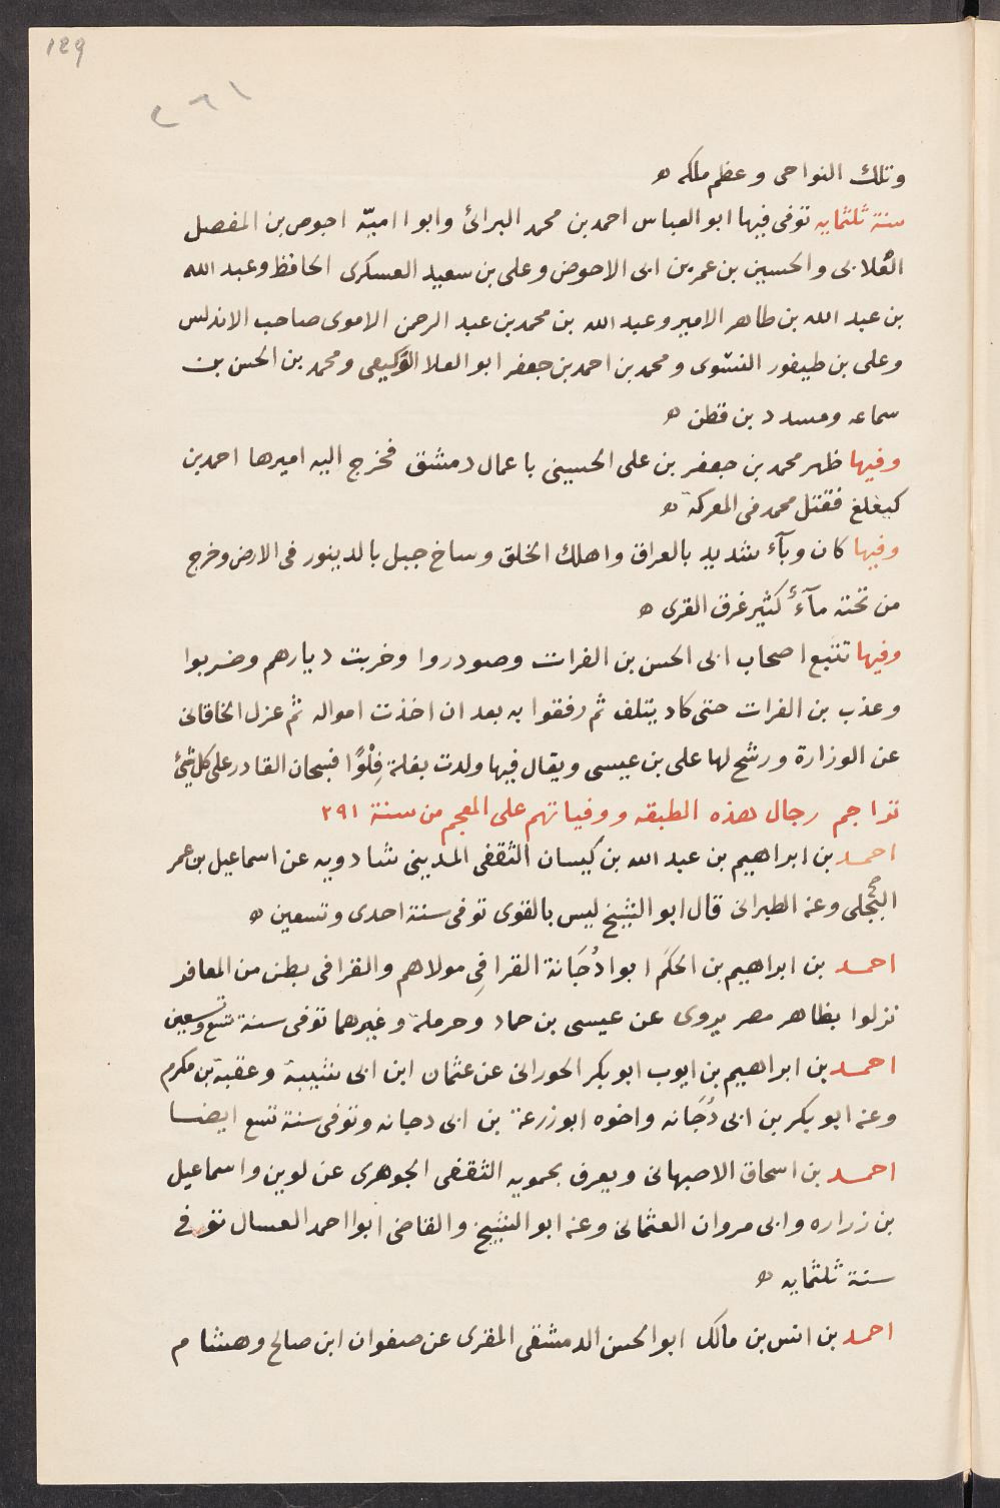 129
٢٦١
وتلك النواحى وعظم ملكه ه
سنة ثلثمايه توفى فيها ابو العباس احمد بن محمد البراثى وابوا اميّه احوص بن المفصل
الغلابى والحسين بن عمر بن ابى الاحوض وعلى بن سعيد العسكرى الحافظ وعبد الله
بن عبد الله بن طاهر الامير وعبد الله بن محمد بن عبد الرحمن الاموى صاحب الاندلس
وعلى بن طيفور النسّوى ومحمد بن احمد بن جعفر ابو العلا الوكيعى ومحمد بن الحسن بن
سماعه ومسدد بن قطن ه
وفيها ظهر محمد بن جعفر بن على الحسينى باعمال دمشق فخرج اليه اميرها احمد بن
كيغلغ فقتل محمد فى المعركة ه
وفيها كان وبآء شديد بالعراق واهلك الخلق وساخ جبل بالدينور فى الارض وخرج
من تحته مآءٌ كثير غرق القرى ه
وفيها تتبع اصحاب ابى الحسن بن الفرات وصودروا وخربت ديارهم وضربوا
وعذب بن الفرات حتى كاد يتلف ثم رفقوا به بعد ان اخذت امواله ثم عزل الخاقانى
عن الوزارة ورشح لها على بن عيسى ويقال فيها ولدت بغلة فِلْوًا فسبحان القادر على كل شئ
تراجم رجال هذه الطبقه ووفياتهم على المعجم من سنة ٢٩١
احمد بن ابراهيم بن عبد الله بن كيسان الثقفى المدينى شادويه عن اسماعيل بن عمر
البجلى وعنه الطبرانى قال ابو الشيخ ليس بالقوى توفى سنة احدى وتسعين ه
احمد بن ابراهيم بن الحكَم ابوا دُجَانة القرافِى مولاهم والقرافى بطن من المعافر
نزلوا بظاهر مصر يروى عن عيسى بن حماد وحرملة وغيرهما توفى سنة تسع وتسعين
احمد بن ابراهيم بن ايوب ابو بكر الحورانى عن عثمان ابن ابى شيبة وعقبة بن مكرم
وعنه ابو بكر بن ابى دُجَانه واخوه ابو زرعة بن ابى دجانه وتوفى سنة تسع ايضا
احمد بن اسحاق الاصبهانى ويعرف بحمويه الثقفى الجوهرى عن لوين واسماعيل
بن زراره وابى مروان العثمانى وعنه ابو الشيخ والقاضى ابوا احمد العسال توفى
سنة ثلثمايه ه
احمد بن انس بن مالك ابو الحسن الدمشقى المقرى عن صفوان ابن صالح وهشام